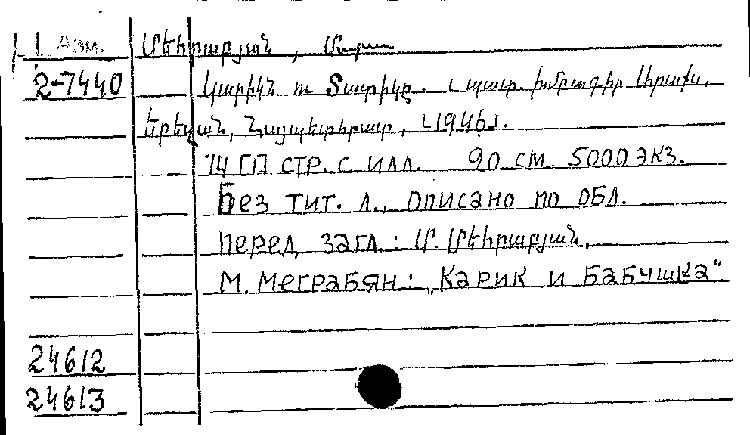 Մեհրաբյան, Մարո
2-7440 Կարիկն ու Տատիկը.
Երեվան, Հայպետհրատ, 1946.
14 стр. с илл. 20 см 5000 экз.
Без тит. л., описано по обл.
Перед загл.: Մ. Մեհրաբյան.
М. Меграбян: „Карик и бабушка"
24612
24613